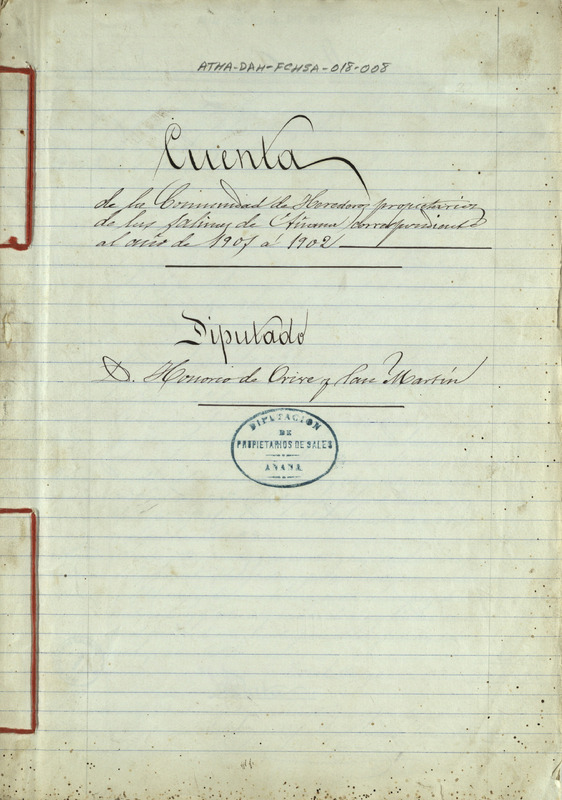 ATHA-DAH-FCHSA-018-008
Cuenta
de la Comunidad de Herederos propietarios
de las Salinas de Añana correspondiente
al año de 1901 á 1902
Diputado
D. Honorio de Orive y San Martín
DIPUTACION
DE
PROPIETARIOS DE SALES
AÑANA